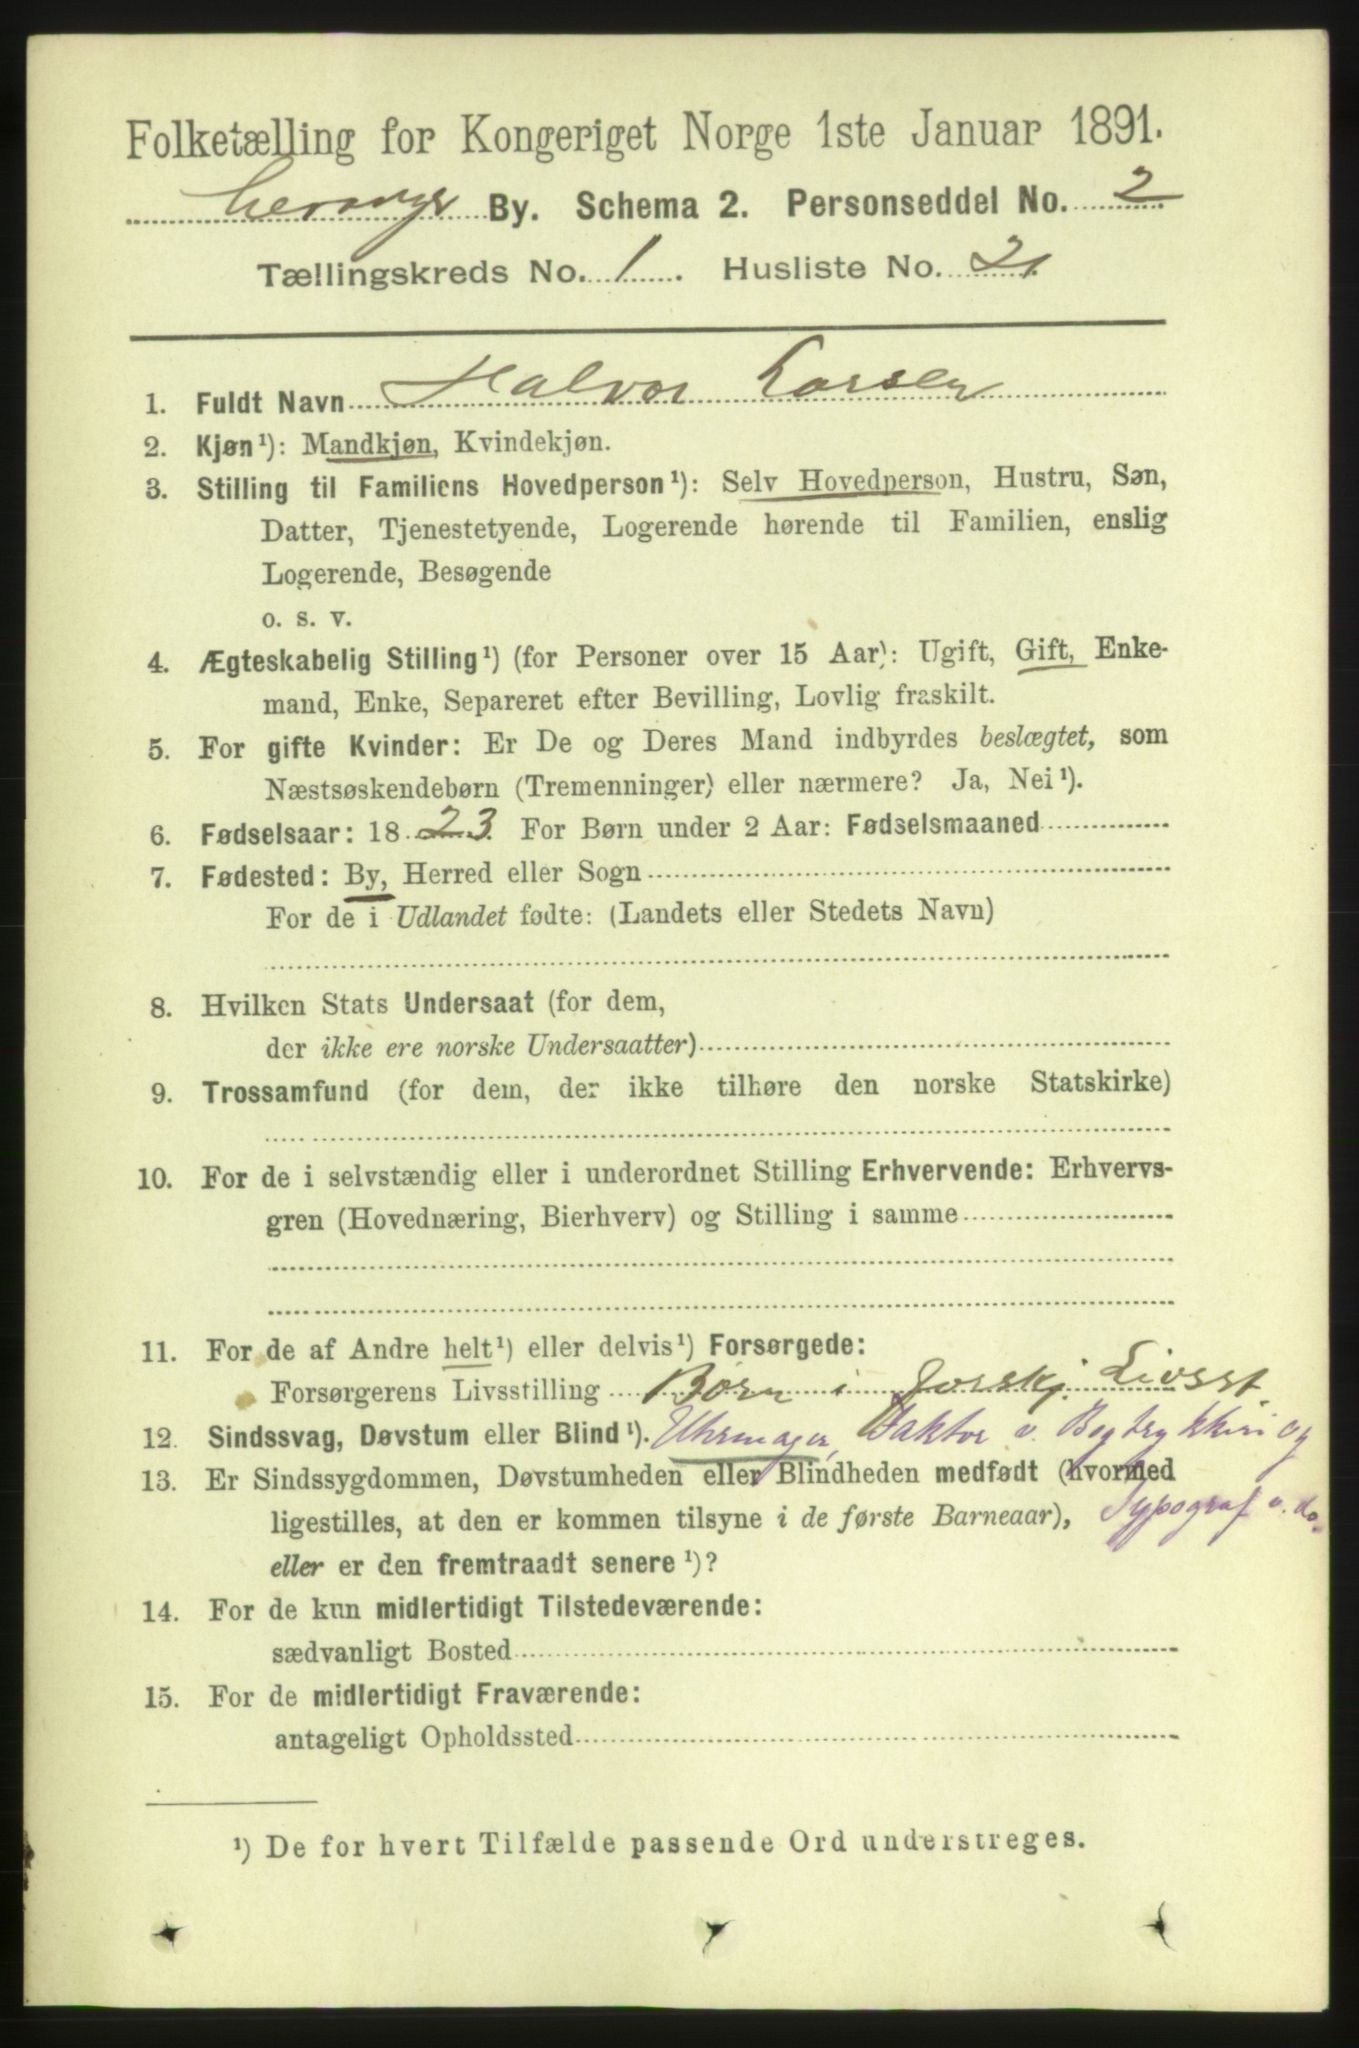 Folketælling for Kongeriget Norge 1ste Januar 1891.
Levanger By. Schema 2. Personseddel No. 2
Tællingskreds No. 1. Husliste No. 21
1. Fuldt Navn Halvor Larsen
2. Kjøn¹): Mandkjøn, Kvindekjøn.
3. Stilling til Familiens Hovedperson¹): Selv Hovedperson, Hustru, Søn,
Datter, Tjenestetyende, Logerende hørende til Familien, enslig
Logerende, Besøgende
o. s. v.
4. Ægteskabelig Stilling¹) (for Personer over 15 Aar): Ugift, Gift, Enke-
mand, Enke, Separeret efter Bevilling, Lovlig fraskilt.
5. For gifte Kvinder: Er De og Deres Mand indbyrdes beslægtet, som
Næstsøskendebørn (Tremenninger) eller nærmere? Ja, Nei¹).
6. Fødselsaar: 1823. For Børn under 2 Aar: Fødselsmaaned
7. Fødested: By, Herred eller Sogn
For de i Udlandet fødte: (Landets eller Stedets Navn)
8. Hvilken Stats Undersaat (for dem,
der ikke ere norske Undersaatter)
9. Trossamfund (for dem, der ikke tilhøre den norske Statskirke)
10. For de i selvstændig eller i underordnet Stilling Erhvervende: Erhvervs-
gren (Hovednæring, Bierhverv) og Stilling i samme
11. For de af Andre helt¹) eller delvis¹) Forsørgede:
Forsørgerens Livsstilling Børn i forskj. Livsst
12. Sindssvag, Døvstum eller Blind¹). Uhrmager, Faktor v. Bogtrykkeri og
13. Er Sindssygdommen, Døvstumheden eller Blindheden medfødt (hvormed
ligestilles, at den er kommen tilsyne i de første Barneaar), Typograf v. do.
eller er den fremtraadt senere¹)?
14. For de kun midlertidigt Tilstedeværende:
sædvanligt Bosted
15. For de midlertidigt Fraværende:
antageligt Opholdssted
¹) De for hvert Tilfælde passende Ord understreges.